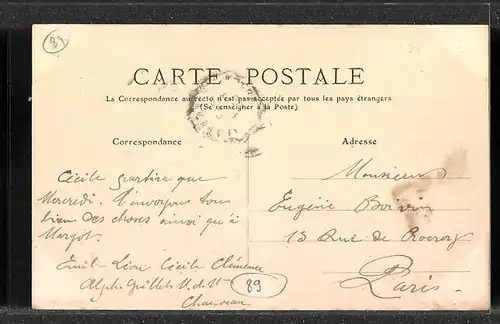 89
CARTE POSTALE
La Correspondance au recto n'est pas acceptée par tous les pays étrangers
(Se renseigner à la Poste)
Correspondance
Cécile partira que
Mercredi. t'envoyons tous
bien des choses ainsi qu'à
Margot.
Emile Léon Cécile Clémence
Chauveau
89
Adresse
Monsieur
Eugène Boivin
13 Rue de Rocroy
Paris.